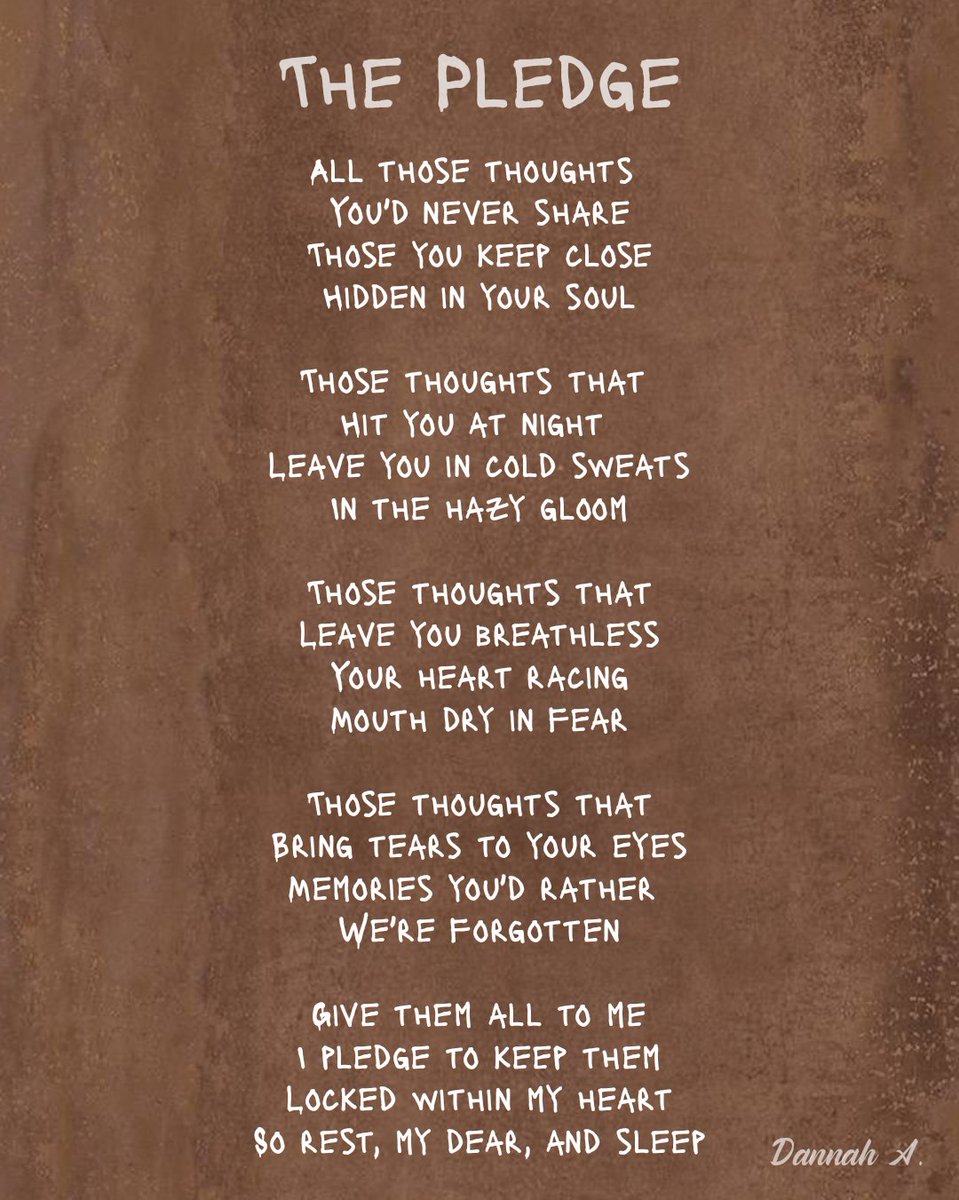 THE PLEDGE
ALL THOSE THOUGHTS
YOU'D NEVER SHARE
THOSE YOU KEEP CLOSE
HIDDEN IN YOUR SOUL
THOSE THOUGHTS THAT
HIT YOU AT NIGHT
LEAVE YOU IN COLD SWEATS
IN THE HAZY GLOOM
THOSE THOUGHTS THAT
LEAVE YOU BREATHLESS
YOUR HEART RACING
MOUTH DRY IN FEAR
THOSE THOUGHTS THAT
BRING TEARS TO YOUR EYES
MEMORIES YOU'D RATHER
WE'RE FORGOTTEN
GIVE THEM ALL TO ME
I PLEDGE TO KEEP THEM
LOCKED WITHIN MY HEART
SO REST, MY DEAR, AND SLEEP
Dannah A.